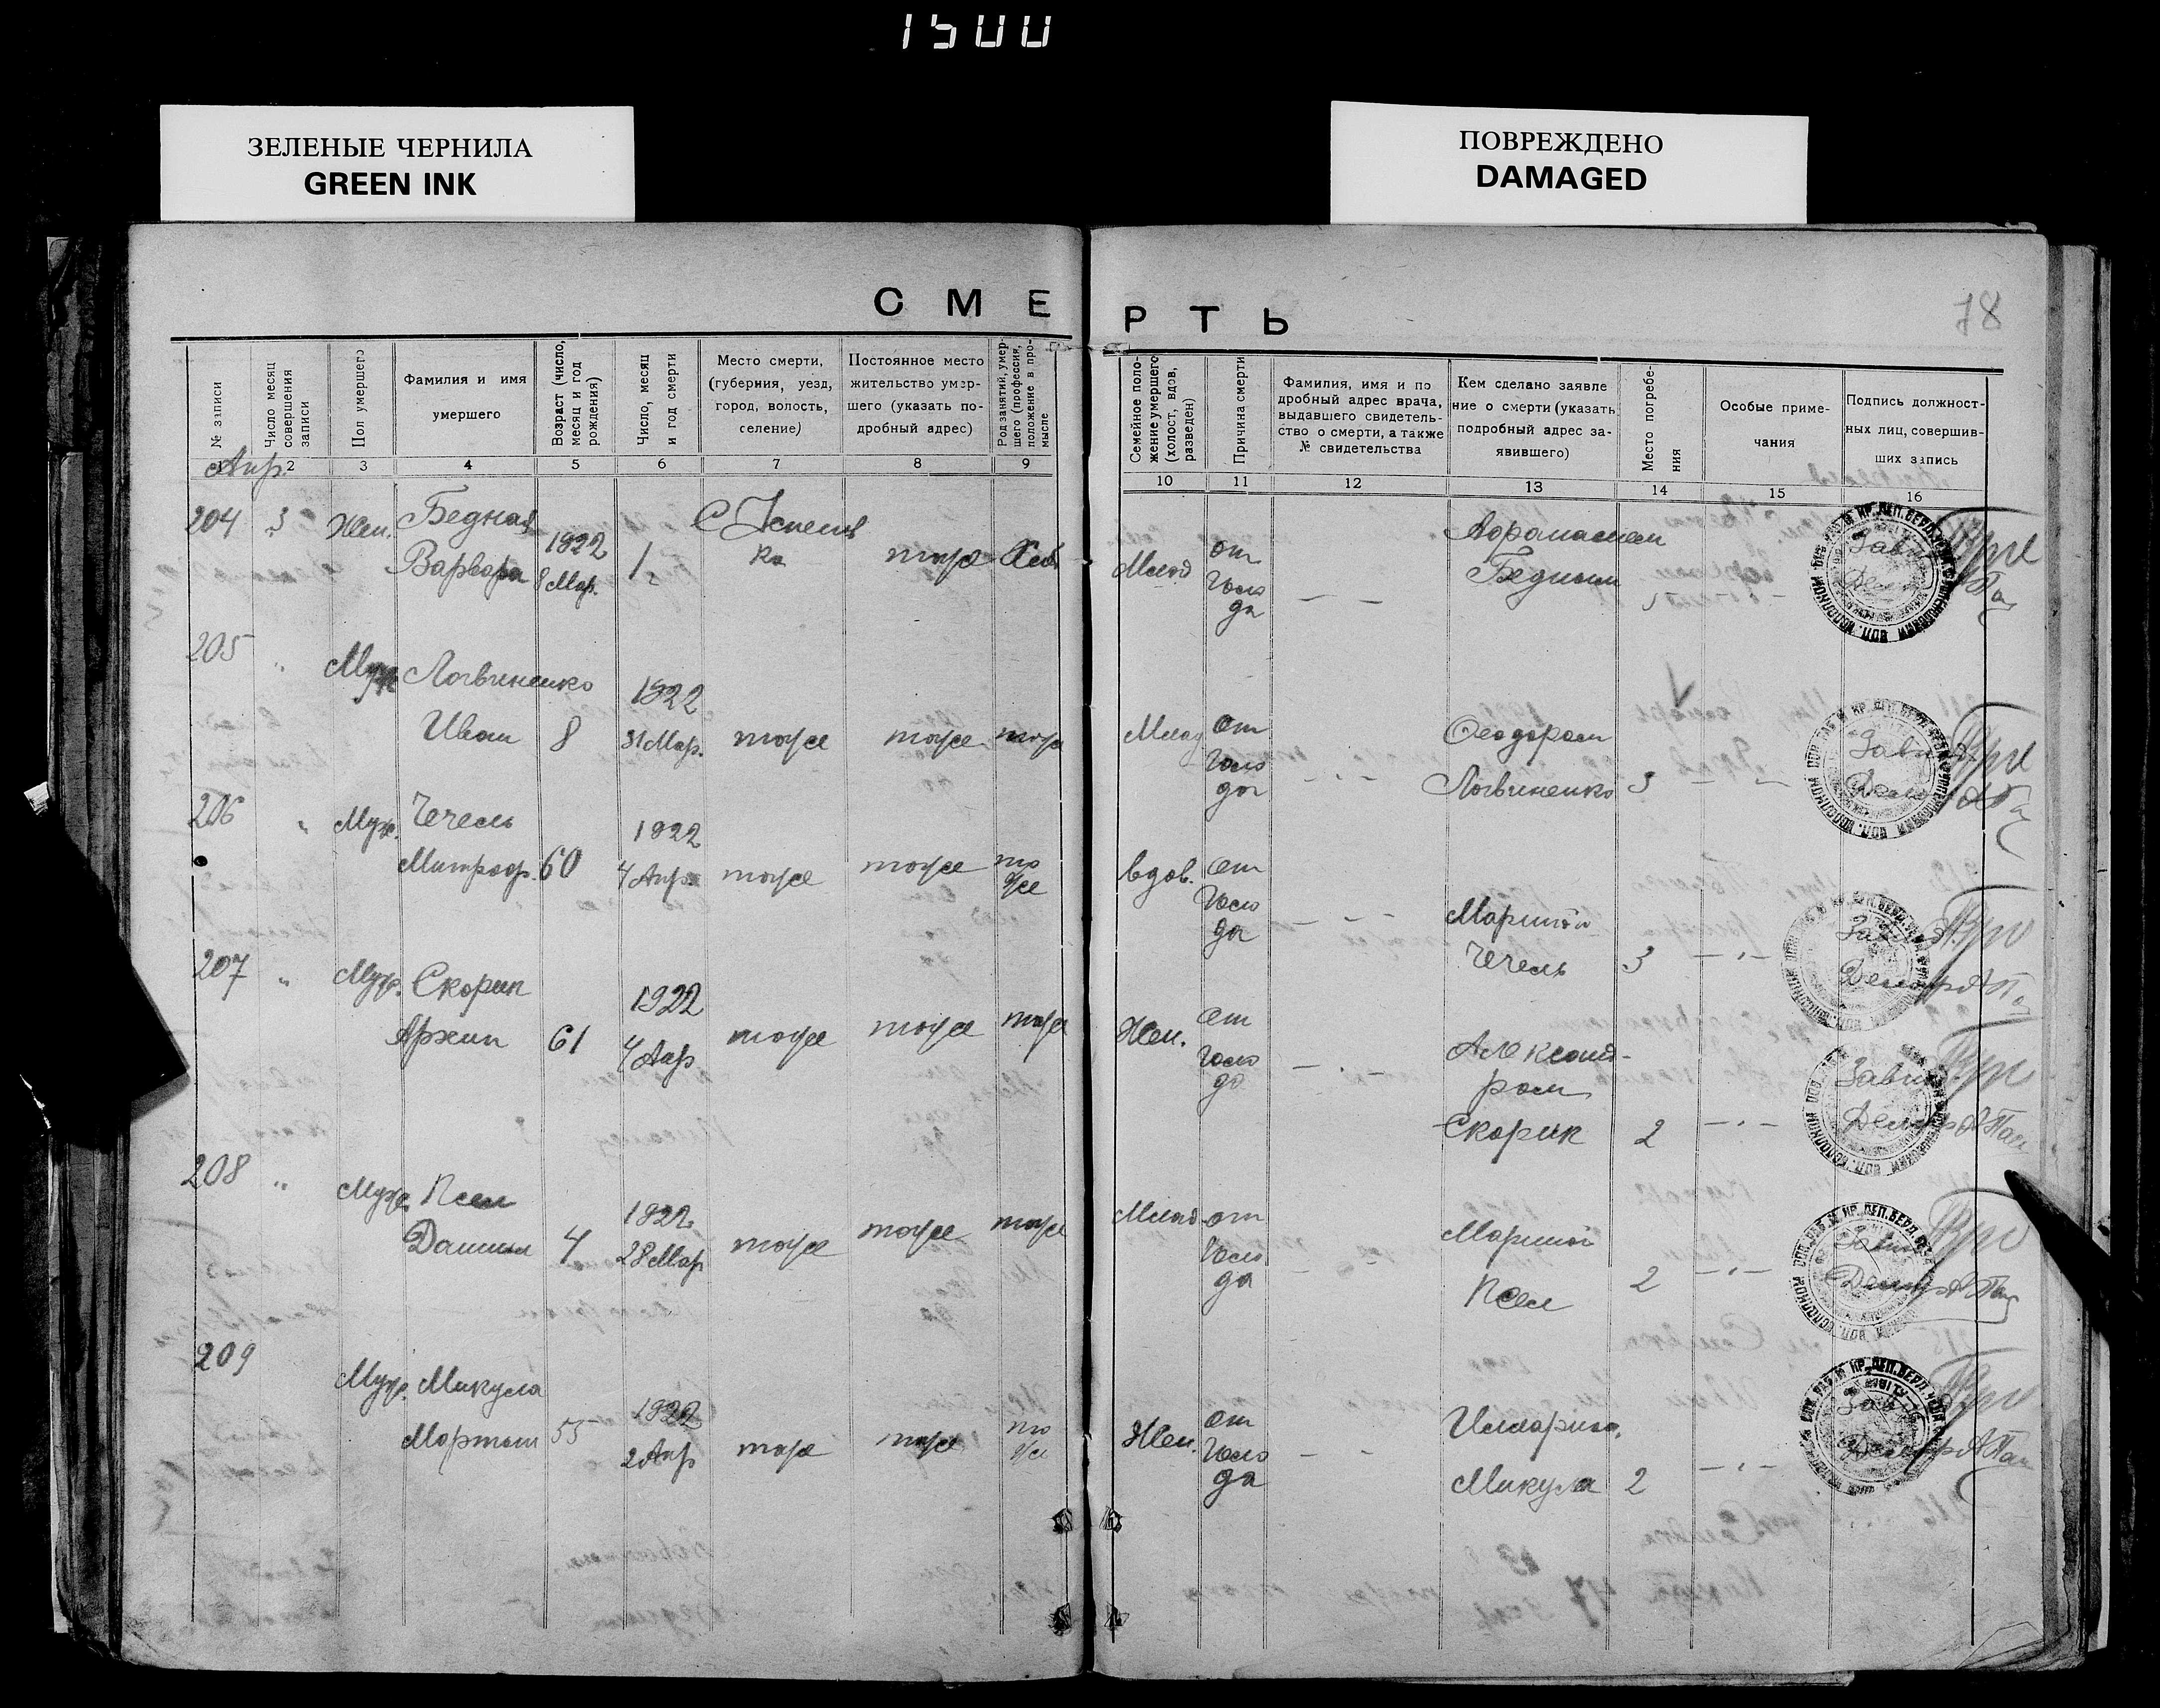 1500
ЗЕЛЕНЫЕ ЧЕРНИЛА
GREEN INK
ПОВРЕЖДЕНО
DAMAGED
78
СМЕРТЬ
№ записи
Число месяц совершения записи
Пол умершего
Фамилия и имя
умершего
Возраст (число,
месяц и год
рождения)
Число, месяц
и год смерти
Место смерти,
(губерния, уезд,
город, волость,
селение)
Постоянное место
жительство умер-
шего (указать по-
дробный адрес)
Род занятий, умер-
шего (профессия,
положение в про-
мысле
Семейное поло-
жение умершего
(холост, вдов,
разведен)
Причина смерти
Фамилия, имя и по
дробный адрес врача,
выдавшего свидетель-
ство о смерти, а также
№ свидетельства
Кем сделано заявле
ние о смерти (указать
подробный адрес за-
явившего)
Место погребе-
ния
Особые приме-
чания
Подпись должност-
ных лиц, совершив-
ших запись
1 2 3 4 5 6 7 8 9 10 11 12 13 14 15 16
Апр.
204 3 Жен. Бедная
Варвара 1922
8 Мар. 1
тоже
Млад от
голо
да
Бедным
205 " Муж Логвиненко
Иван 8 1922
31 Мар. тоже тоже тоже
Млад от
голо
да
Феодором
Логвиненко 3
206 " Муж. Чечель
Митроф. 60 1922
4 Апр. тоже тоже то
же
вдов. от
голо
да
Мариной
Чечель 3
207 " Муж. Скорик
Архип 61 1922
4 Апр тоже тоже тоже
Жен. от
голо
да
Александ-
ром
Скорик 2
208 " Муж. Псел
Даниил 4 1922
28 Мар тоже тоже тоже
Млад от
голо
да
Мариной
Псел 2
209 Муж. Микула
Мартын 55 1922
2 Апр тоже тоже то
же
Жен. от
голо
да
Микула 2